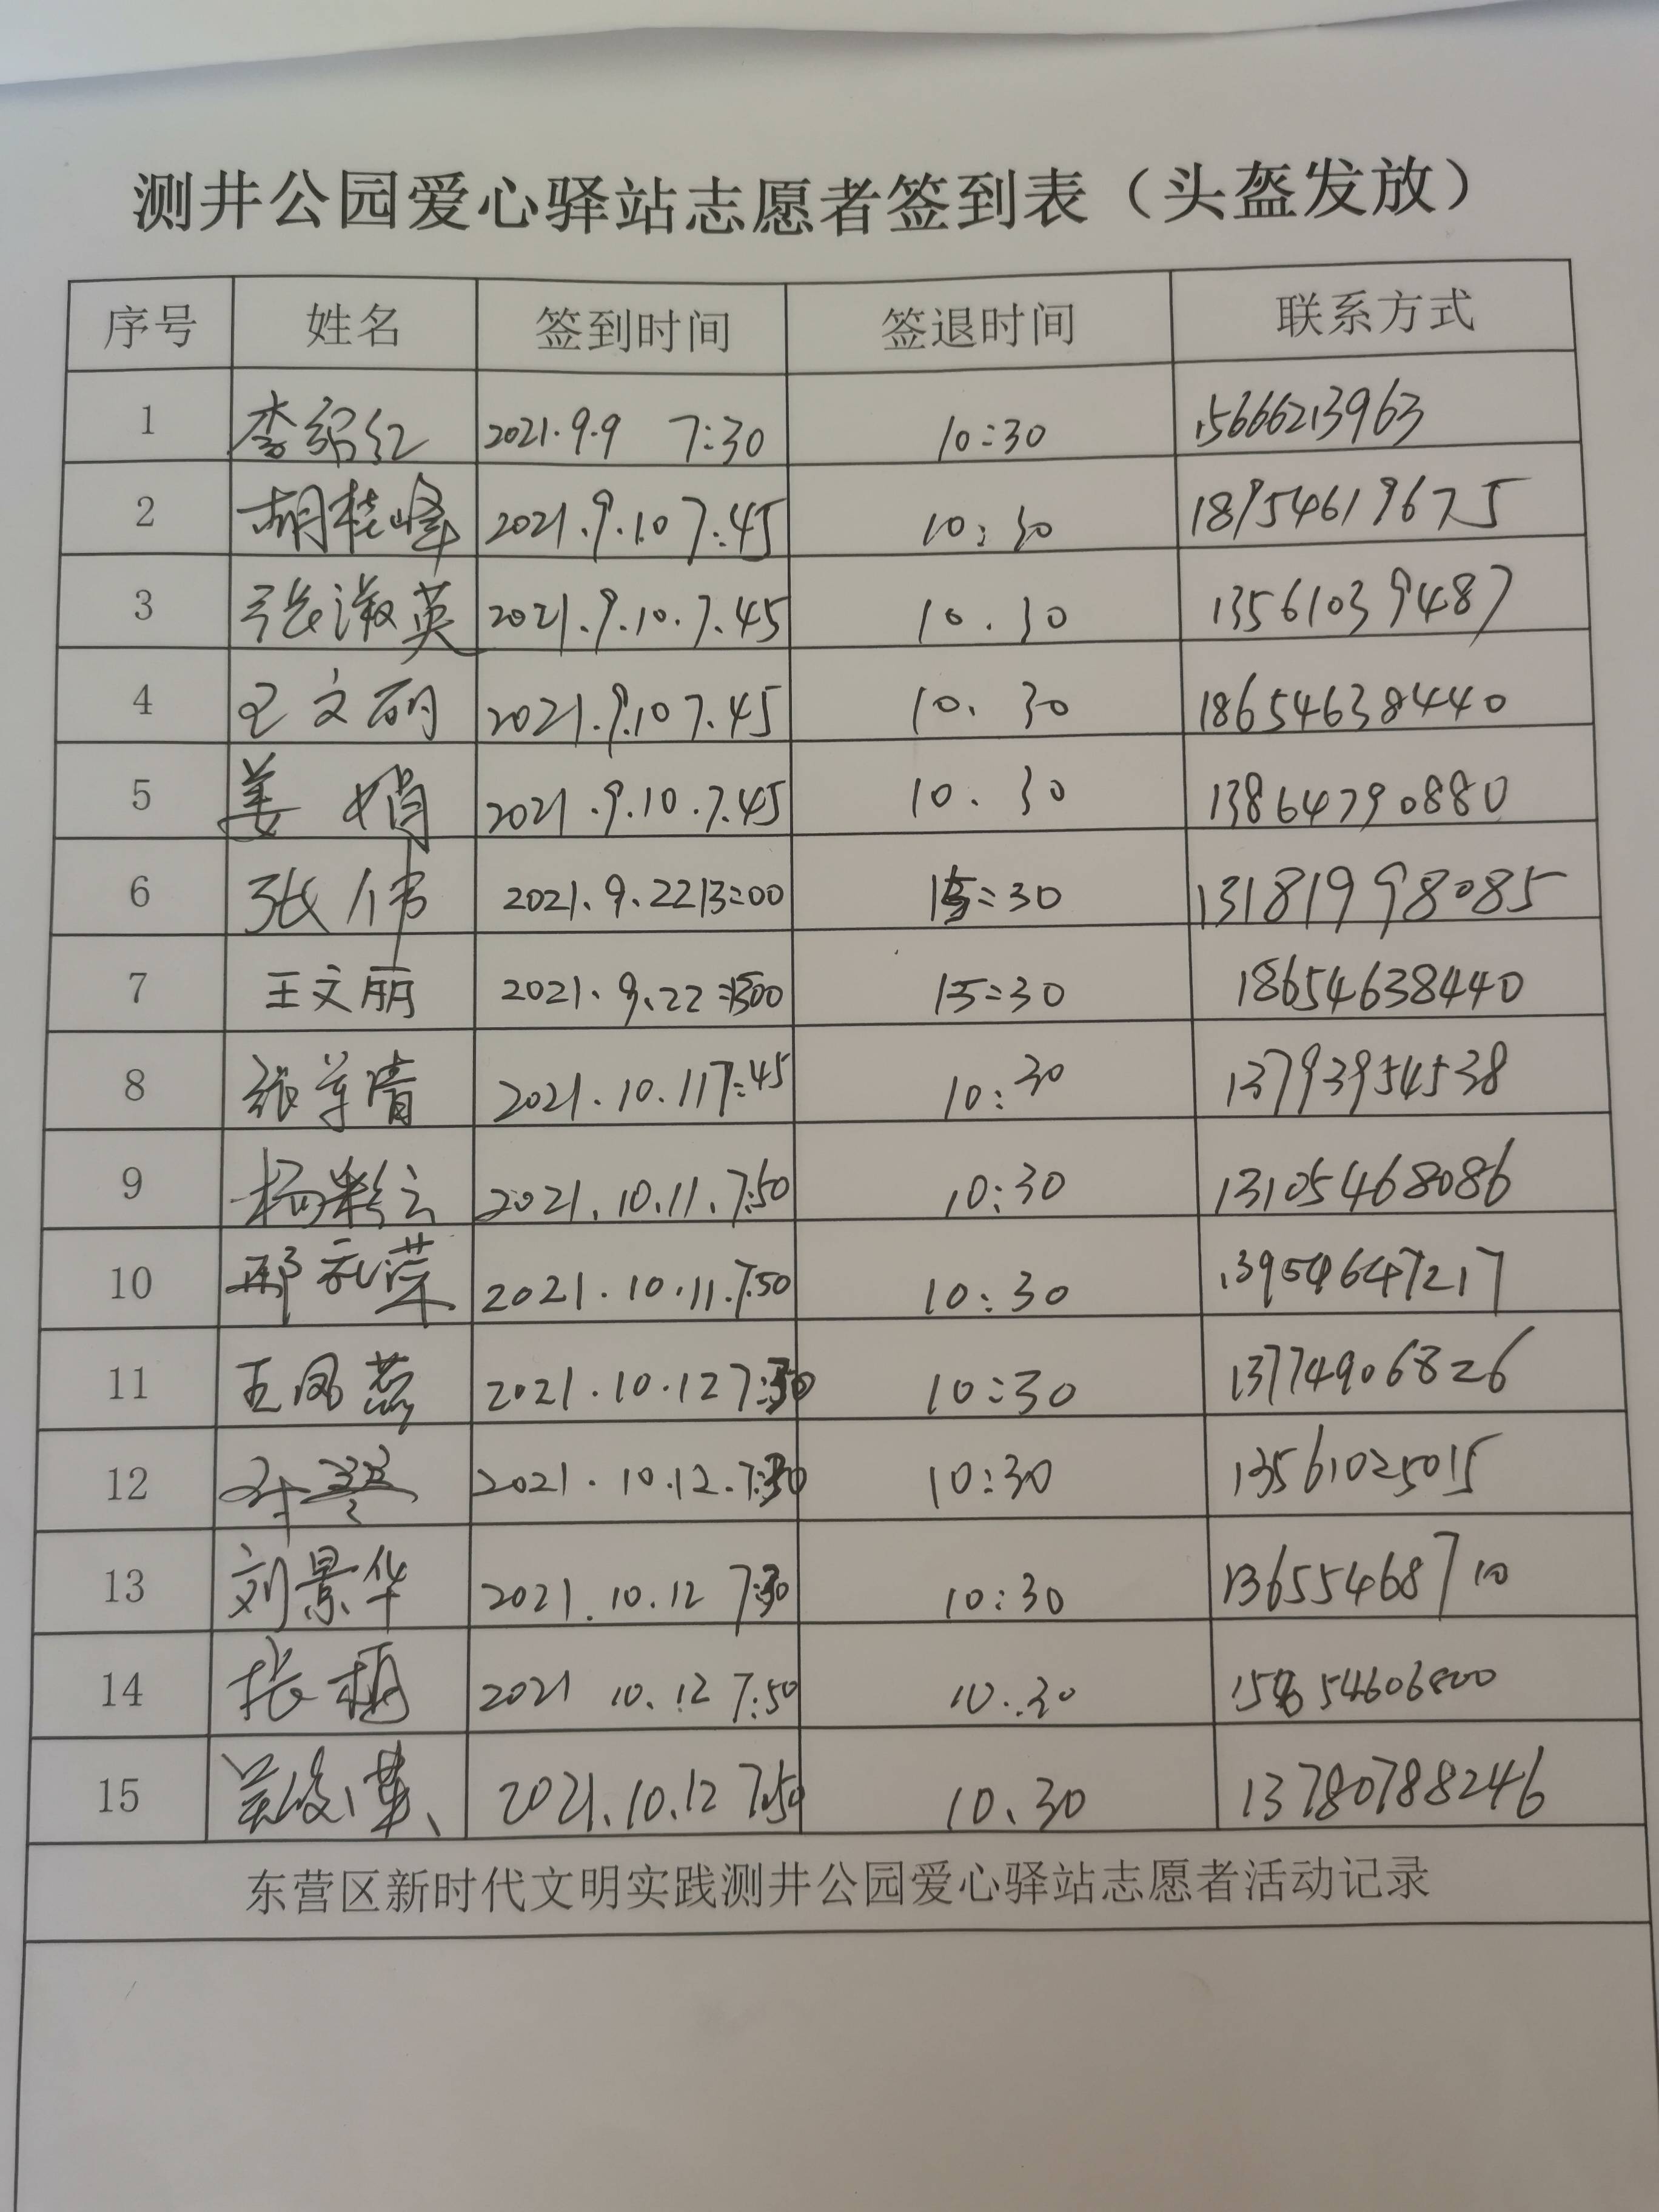 测井公园爱心驿站志愿者签到表（头盔发放）
序号 姓名 签到时间 签退时间 联系方式
1 李绍红 2021.9.9 7:30 10:30 15666213963
2 胡桂峰 2021.9.10 7:45 10:30 18954619675
3 张淑英 2021.9.10.7.45 10.30 13561039487
4 王文丽 2021.9.10 7.45 10.30 18654638440
5 姜娟 2021.9.10.7.45 10.30 13864790880
6 张伟 2021.9.22 13:00 15:30 13181998085
7 王文丽 2021.9.22 15:30 18654638440
8 张尊清 2021.10.11 7:45 10:30 13793954538
9 杨彩云 2021.10.11.7:50 10:30 13105468086
10 邢永萍 2021.10.11.7:50 10:30 13954647217
11 王凤燕 2021.10.12 7:30 10:30 13774906826
12 2021.10.12.7:30 10:30 13561025015
13 刘景华 2021.10.12 7:30 10:30 13655468710
14 张梅 2021 10.12 7:50 10:30
15 2021.10.12 7:50 10.30 13780788246
东营区新时代文明实践测井公园爱心驿站志愿者活动记录